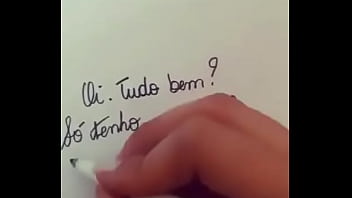 Oi. Tudo bem?
Só tenho